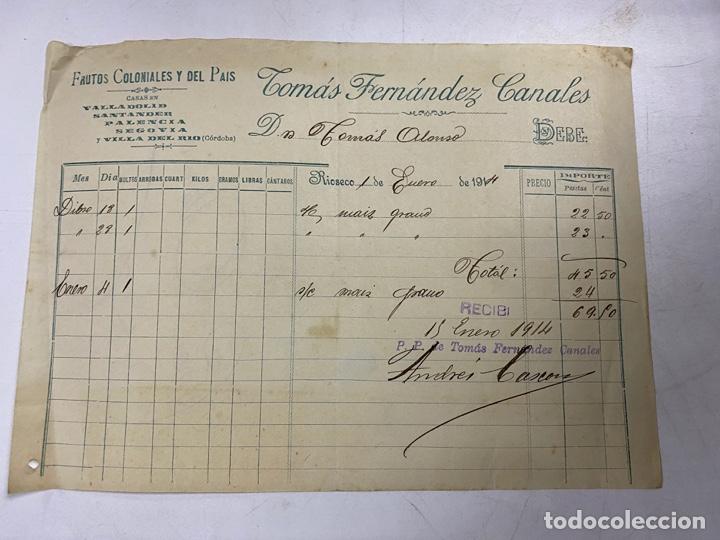 FRUTOS COLONIALES Y DEL PAIS
CASAS EN
VALLADOLID
SANTANDER
PALENCIA
SEGOVIA
Y VILLA DEL RIO (Córdoba)
Tomás Fernández Canales
D. Tomás Alonso DEBE
Rioseco 1 de Enero de 1914
Mes Dia BULTOS ARROBAS CUART. KILOS GRAMOS LIBRAS CÁNTAROS PRECIO IMPORTE
Pesetas Cént
Dibre 18 1 s/c maiz grano 22 50
" 28 1 " " " 23 "
Total: 45 50
Enero 4 1 s/c maiz grano 24
69.50
RECIBI
15 Enero 1914
P. P. de Tomás Fernández Canales
Andrés
todocoleccion
todocoleccion.net